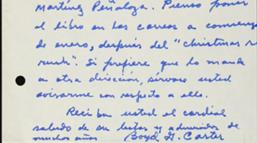 Martínez Peñaloza. Pienso poner
el libro en los correos a comienzos
de enero, después del "christmas r
rush". Si prefiere que lo mande
a otra dirección, sírvase usted
avisarme con respecto a ello.
Reciba usted el cordial
saludo de su lector y admirador de
muchos años Boyd G. Carter